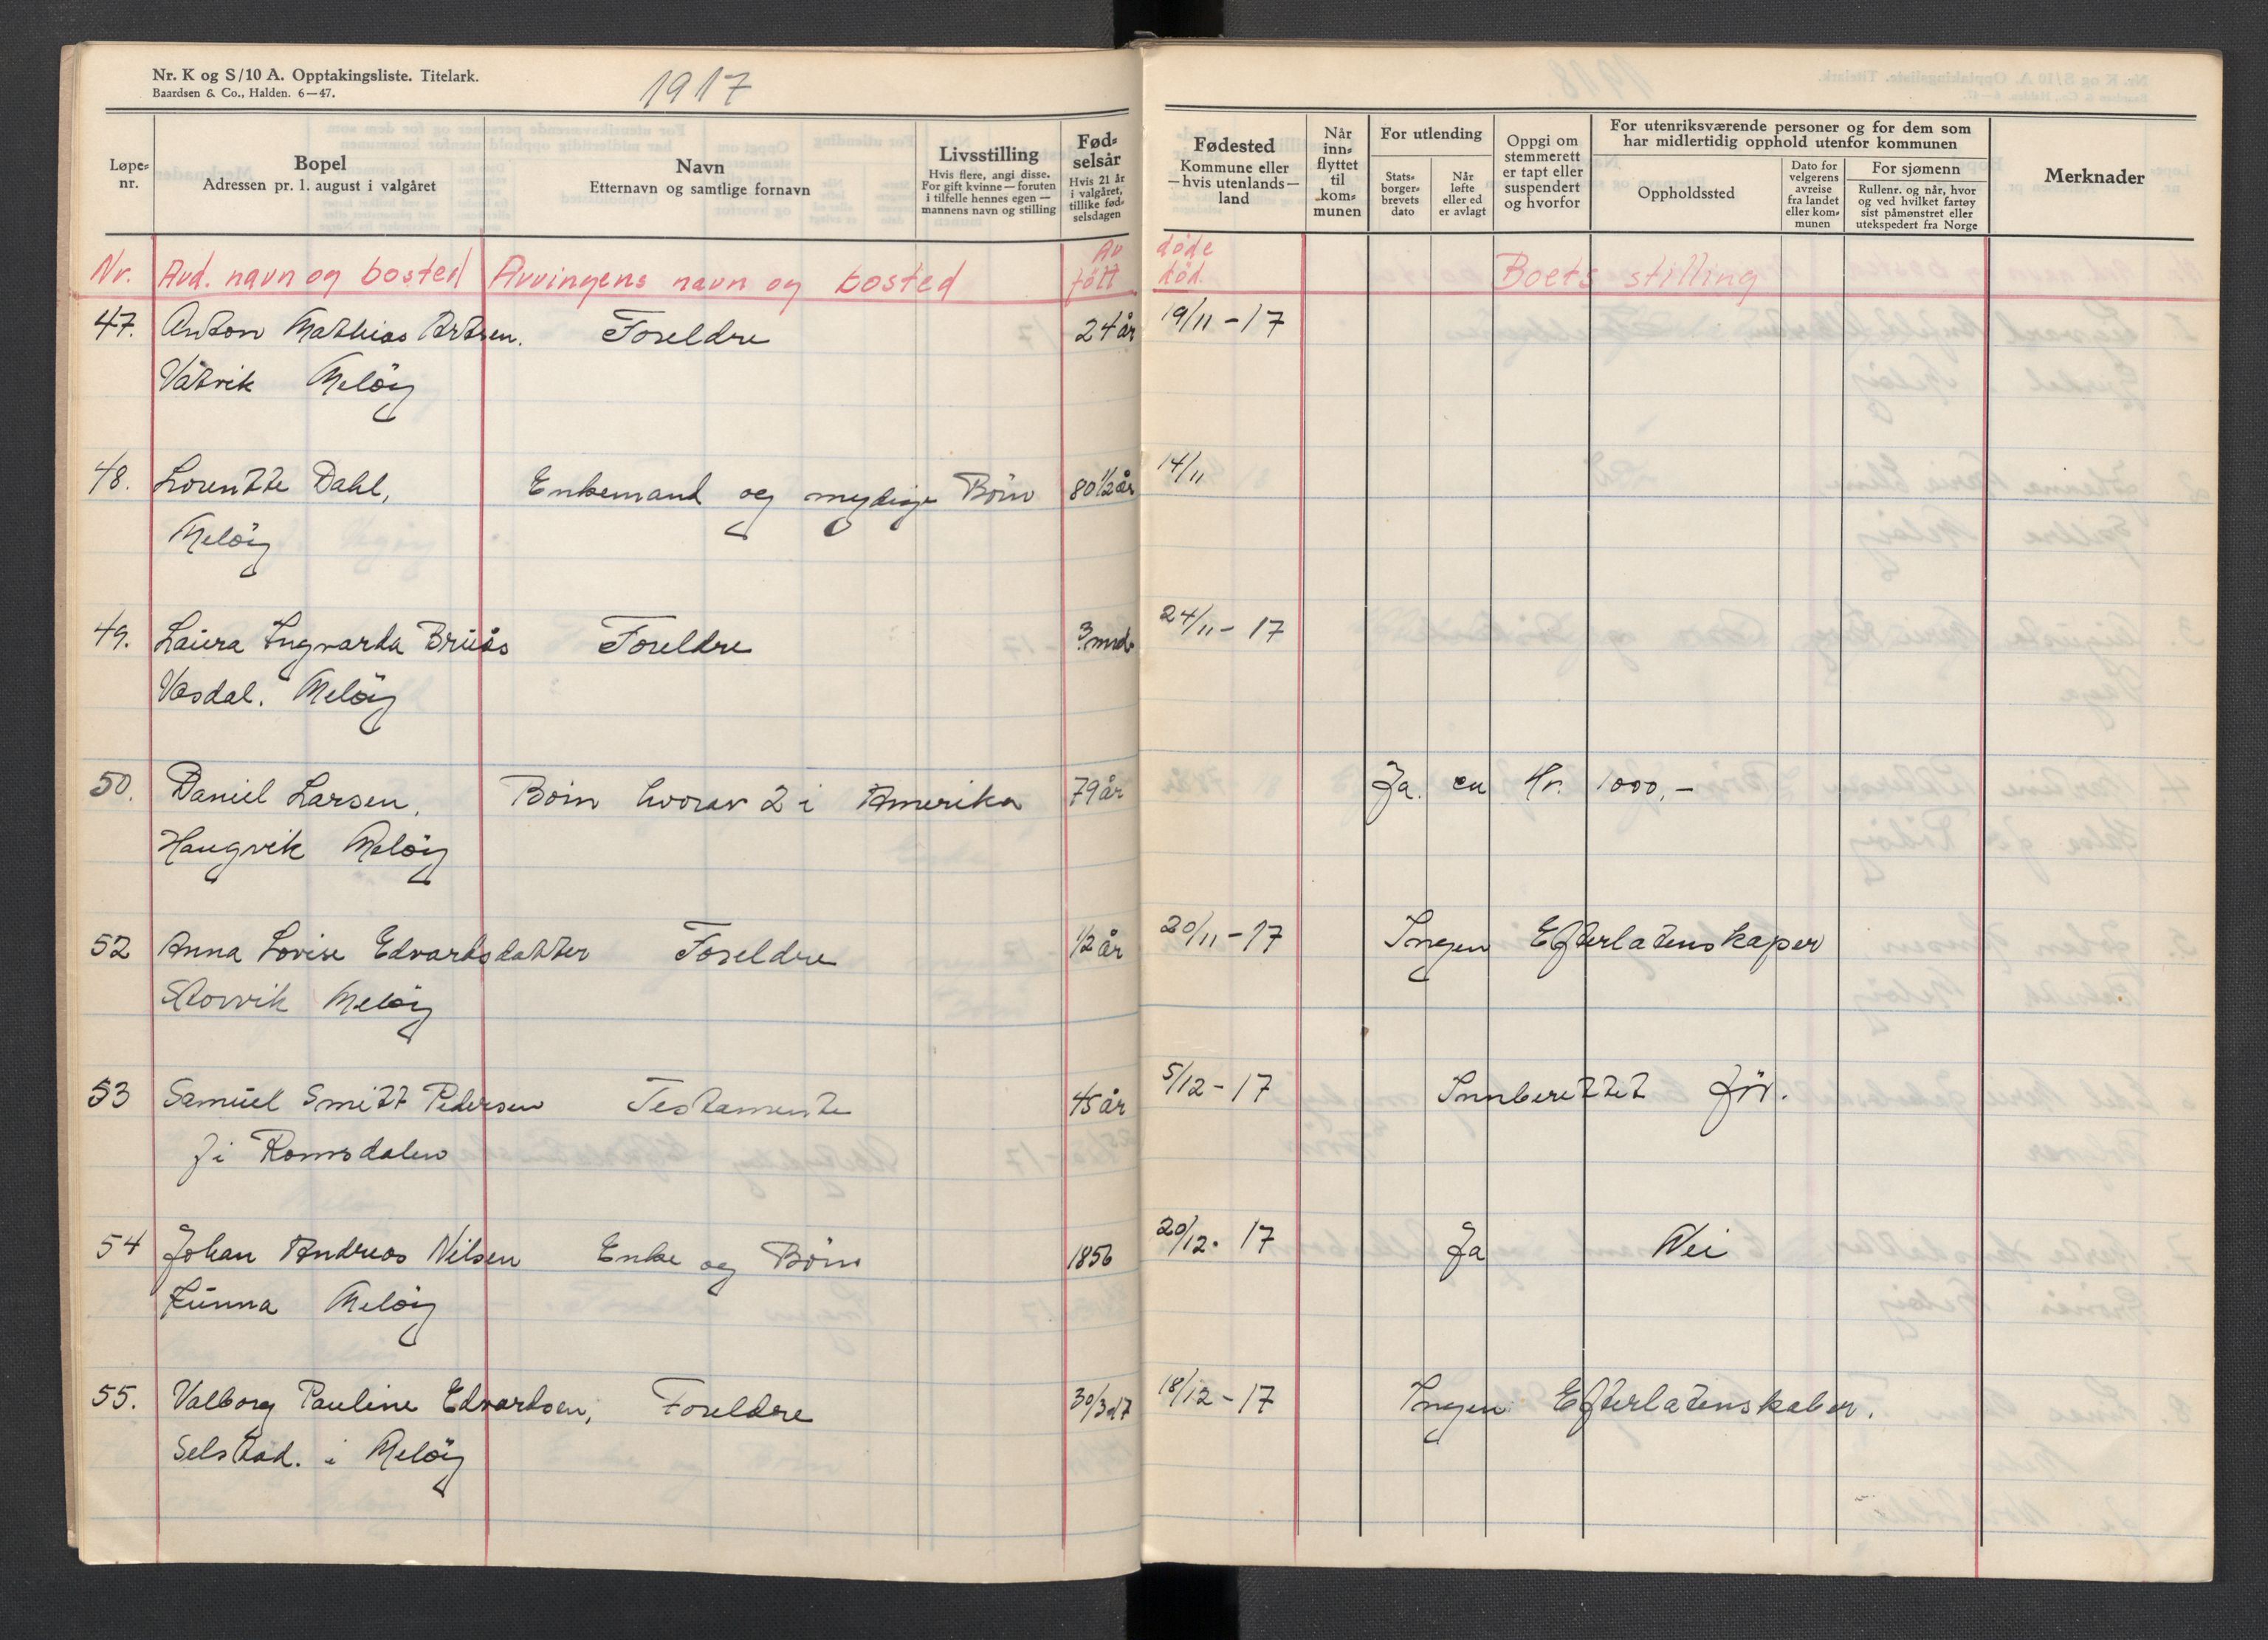 Nr. K og S/10 A. Opptakingsliste. Titelark.
Baardsen & Co., Halden. 6—47.
1917
Løpe-
nr.
Bopel
Adressen pr. 1. august i valgåret
Navn
Etternavn og samtlige fornavn
Livsstilling
Hvis flere, angi disse.
For gift kvinne — foruten
i tilfelle hennes egen —
mannens navn og stilling
Fød-
selsår
Hvis 21 år
i valgåret,
tillike fød-
selsdagen
Fødested
Kommune eller
—hvis utenlands—
land
Når
inn-
flyttet
til
kom-
munen
For utlending
Stats-
borger-
brevets
dato
Når
løfte
eller ed
er avlagt
Oppgi om
stemmerett
er tapt eller
suspendert
og hvorfor
For utenriksværende personer og for dem som
har midlertidig opphold utenfor kommunen
Oppholdssted
Dato for
velgerens
avreise
fra landet
eller kom-
munen
For sjømenn
Rullenr. og når, hvor
og ved hvilket fartøy
sist påmønstret eller
utekspedert fra Norge
Merknader
Av døde
Nr. Avd. navn og bosted Arvingens navn og bosted fött död. Boets stilling
47. Anton Mathias Artsen. Foreldre 24 år 19/11-17
Våtvik Melöy
48. Lorentte Dahl, Enkemand og myndige Börn 80 1/2 år 14/11
Melöy
49. Laura Ingvarda Bruås Foreldre 3 mnd. 24/11-17
Vasdal. Melöy
50. Daniel Larsen, Börn hvorav 2 i Amerika 79 år Ja. ca Kr. 1000,-
Haugvik Melöy
52 Anna Lovise Edvardsdatter Foreldre 1/2 år 20/11-17 Ingen Efterlatenskaper
Storvik Melöy
53 Samuel Smitt Pedersen Testamente 45 år 5/12-17 Innberettet för.
fi Romsdalen
54 Johan Andreas Nilsen Enke og Börn 1856 20/12-17 Ja Nei
Kunna Melöy
55. Valborg Pauline Edvardsen, Foreldre 30/3-17 18/12-17 Ingen Efterlatenskaber.
Selstad. i Melöy